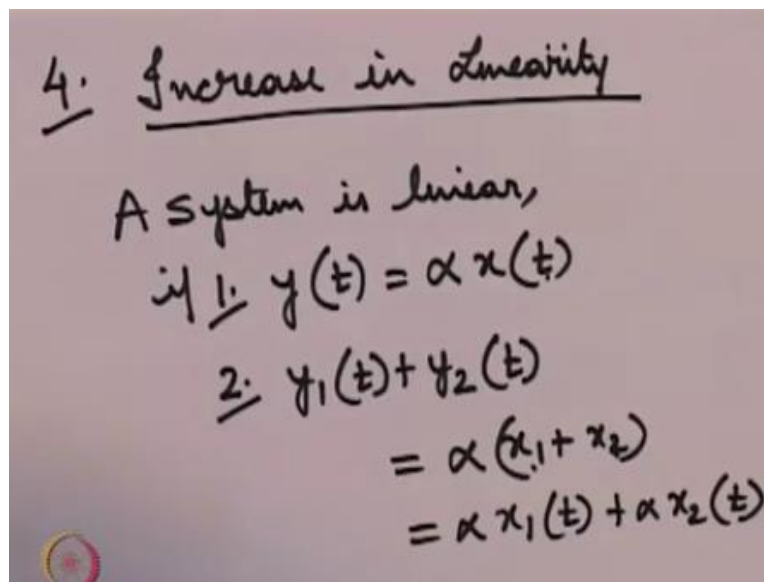 4. Increase in Linearity
A system is linear,
if 1. y(t) = α x(t)
2. y₁(t) + y₂(t)
= α (x₁ + x₂)
= α x₁(t) + α x₂(t)